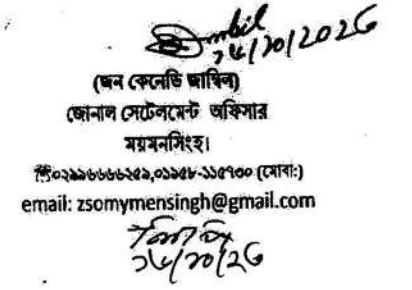 ১৬/১০/২০২৫
(জন কেনেডি জাম্বিল)
জোনাল সেটেলমেন্ট অফিসার
ময়মনসিংহ।
☎০২৯৯৬৬৬৬২৫২,০১৯৫৮-১১৫৭৩০ (মোবা:)
email: zsomymensingh@gmail.com
১৬/১০/২৫